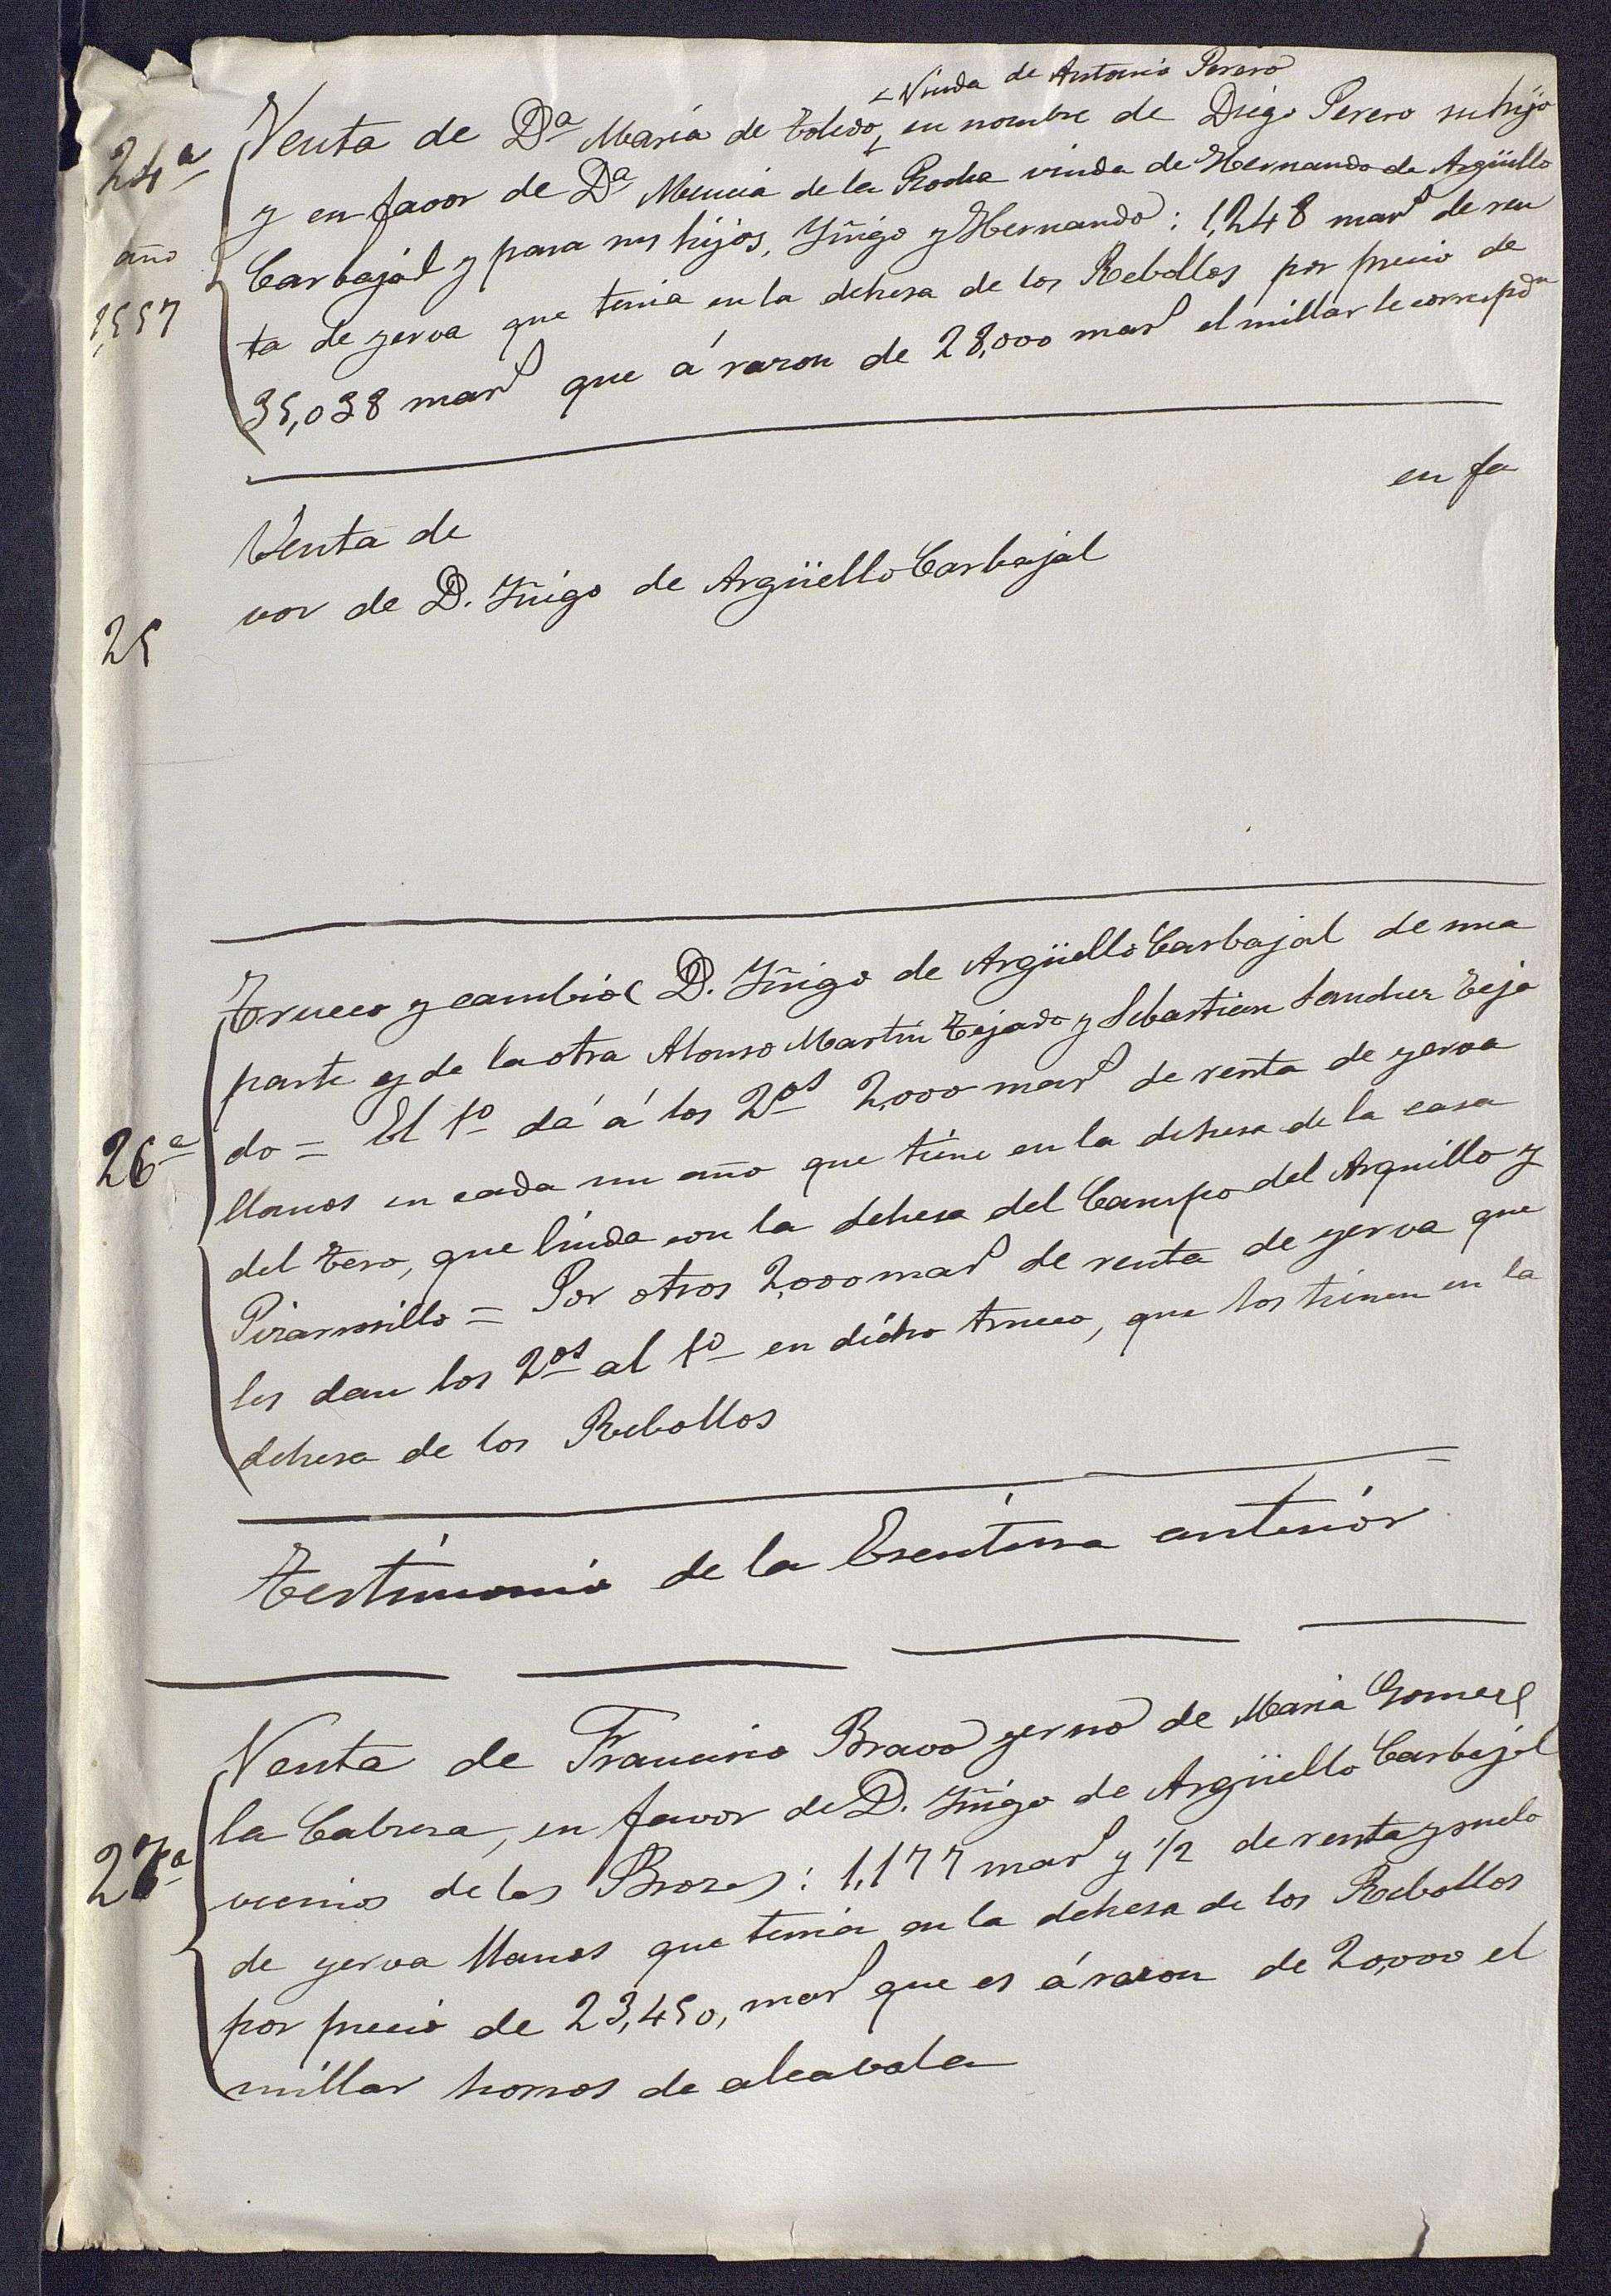 Viuda de Antonio Perero
24ª Venta de Dª María de Toledo, en nombre de Diego Perero su hijo
y en favor de Dª Mencia de la Rocha viuda de Hernando de Argüello
año Carbajál y para sus hijos, Yñigo y Hernando: 1,248 marˢ de ren
1,557 ta de yerva que tenia en la dehesa de los Rebollos por precio de
35,038 marˢ que á razon de 28,000 marˢ el millar le correspdⁿ
Venta de en fa
25 vor de D. Yñigo de Argüello Carbajál
Trueco y cambio D. Yñigo de Argüello Carbajal de una
parte y de la otra Alonso Martin Tejado y Sebastian Sanchez Teja
do = El 1º dá á los 2ºˢ 2,000 marˢ de renta de yerva
26ª llanos en cada un año que tiene en la dehesa de la casa
del Tero, que linda con la dehesa del Campo del Arquillo y
Pizarrosillo = Por otros 2,000 marˢ de renta de yerva que
les dan los 2ºˢ al 1º en dicho trueco, que los tienen en la
dehesa de los Rebollos
Testimonio de la Escritura anteriór
Venta de Francisco Bravo yerno de Maria Gomez
la Cabrera, en favor de D. Yñigo de Argüello Carbajál
27ª vecinos de las Brozas: 1,177 marˢ y 1/2 de renta y suelo
de yerva llanos que tenia en la dehesa de los Rebollos
por precio de 23,450, marˢ que es á razon de 20,000 el
millar horros de alcavala